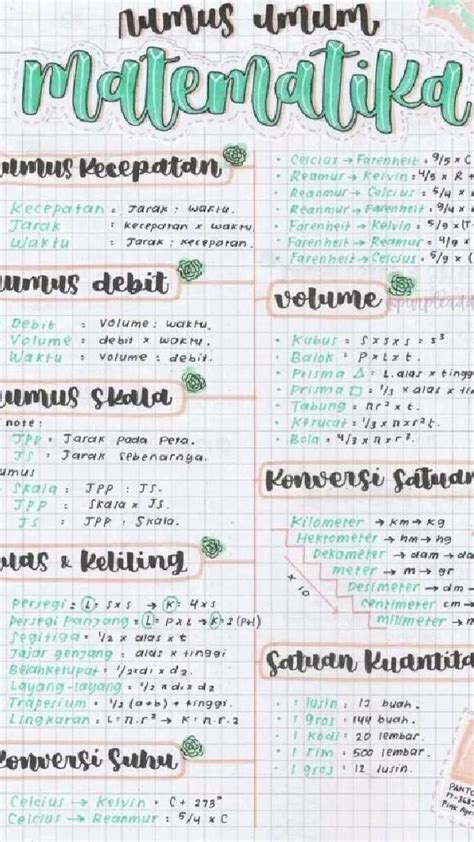 rumus umum
matematika
rumus Kecepatan
Kecepatan = Jarak : waktu.
Jarak : kecepatan x waktu.
waktu : Jarak : kecepatan.
rumus debit
Debit : volume : waktu.
Volume = debit x waktu.
Waktu = volume : debit.
rumus skala
note :
JPP = Jarak pada peta.
JS = Jarak sebenarnya.
umus
Skala = JPP : JS.
JPP = Skala x JS.
JS = JPP : Skala.
uas & Keliling
Persegi = L = s x s → K = 4 x s
Persegi Panjang = L = P x L → K = 2 (P+l)
Segitiga = 1/2 x alas x t
Jajar genjang : alas x tinggi
Belahketupat = 1/2 x d1 x d2
Layang-layang = 1/2 x d1 x d2
Trapesium = 1/2 (a+b) + tinggi.
Lingkaran = L = π.r² → K = π.r.2
Konversi Suhu
Celcius → Kelvin = C + 273°
Celcius → Reanmur = 5/4 x C
Celcius → Farenheit = 9/5 x C
Reamur → Kelvin = 4/5 x R +
Reanmur → Celcius = 5/4 x
Reanmur → Farenheit = 9/4 x
Farenheit → Kelvin = 5/9 x (F
Farenheit → Reamur = 4/9 x
Farenheit → Celcius = 5/9 x (
volume
Kubus = S x S x S = S³
Balok = P x L x t.
Prisma △ = L. alas x tingg
Prisma □ = 1/3 x alas x tin
Tabung = πr² x t.
Kerucut = 1/3 x π x r² t.
Bola = 4/3 x π x r³.
Konversi Satuan
Kilometer → km → kg
Hektometer → hm → hg
Dekameter → dam → da
meter → m → gr
Desimeter → dm →
centimeter → cm →
milimeter → m
x 10
Satuan Kuantita
1 lusin = 12 buah.
1 gros = 144 buah.
1 kodi = 20 lembar.
1 rim = 500 lembar.
1 gros = 12 lusin.
PANTO